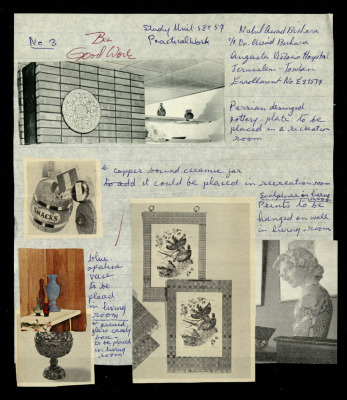 No. 3
B+
Good Work
Study Unit 58 + 59
Practical Work
Nahil Awad Beshara
C/o Dr. Awad Beshara
Augusta Victoria Hospital
Jerusalem - Jordan
Enrollment No E
Persian designed
pottery plate to be
placed in a recreation
room
copper bound ceramic jar
to add it could be placed in recreation room
SNACKS
Sculpture in living
room
Prints to be
hanged on wall
in living room
blue
opaline
vase
to be
placed
in
living
room
+ pressed
glass candy
box
to be placed
in living
room